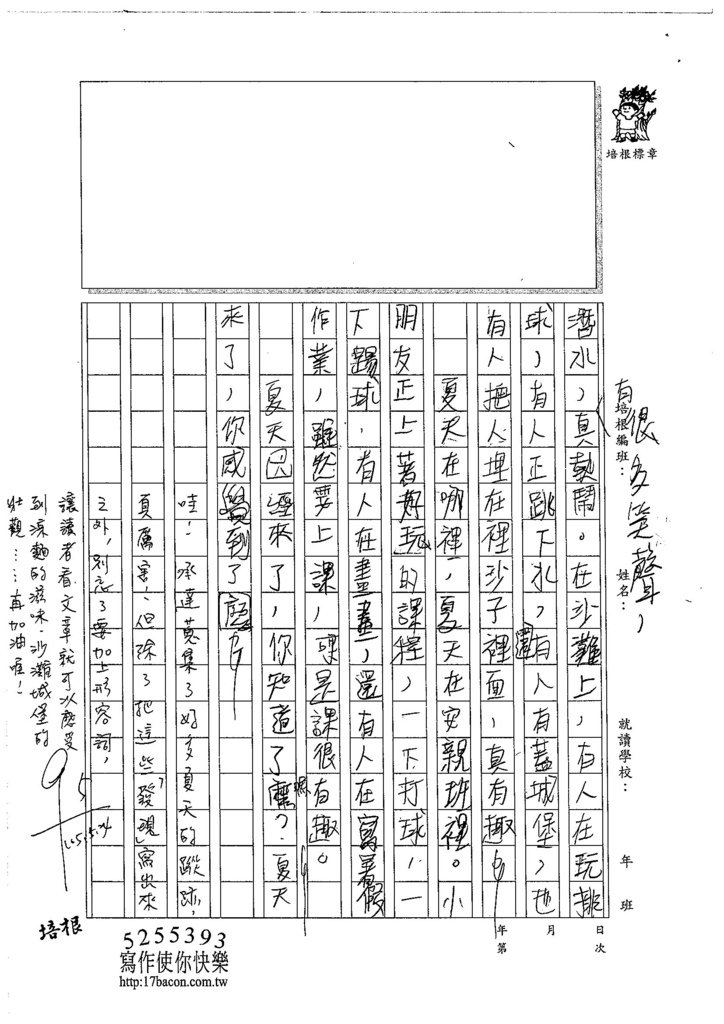 培根標章
有培根編班：
姓名：
就讀學校：
年 班
年 月 日
第 次
很多笑聲，
潛水，真熱鬧。在沙灘上，有人在玩排
球，有人正跳下水，還有人有蓋城堡，也
有人把人埋在裡沙子裡面，真有趣。
夏天在哪裡，夏天在安親班裡。小
朋友正上著好玩的課程，一下打球，一
下踢球，有人在畫畫，還有人在寫暑假
作業，雖然要上課，可是課很有趣。
夏天已經來了，你知道了嗎？夏天
來了，你感覺到了
哇！承達蒐集了好多夏天的蹤跡，
真厲害！但除了把這些「發現」寫出來
之外，別忘了要加上形容詞，
讓讀者看文章就可以感受
到涼麵的滋味、沙灘城堡的
壯觀……再加油喔！
105.5.24
培根
5255393
寫作使你快樂
http:17bacon.com.tw